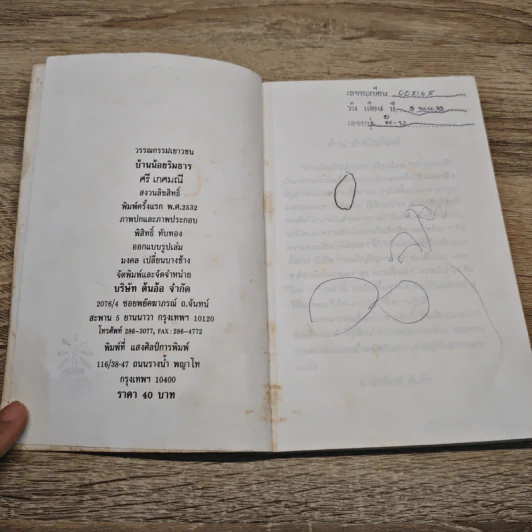 วรรณกรรมเยาวชน
บ้านน้อยริมธาร
ศรี เกศมณี
สงวนลิขสิทธิ์
พิมพ์ครั้งแรก พ.ศ.2532
ภาพปกและภาพประกอบ
พิสิทธิ์ ทับทอง
ออกแบบรูปเล่ม
มงคล เปลี่ยนบางช้าง
จัดพิมพ์และจัดจำหน่าย
บริษัท ต้นอ้อ จำกัด
2076/4 ซอยพยัคฆาภรณ์ ถ.จันทน์
สะพาน 5 ยานนาวา กรุงเทพฯ 10120
โทรศัพท์ 286-3077, FAX : 286-4772
พิมพ์ที่ แสงศิลป์การพิมพ์
116/38-47 ถนนรางน้ำ พญาไท
กรุงเทพฯ 10400
ราคา 40 บาท
เลขทะเบียน
วัน เดือน ปี
เลขหมู่